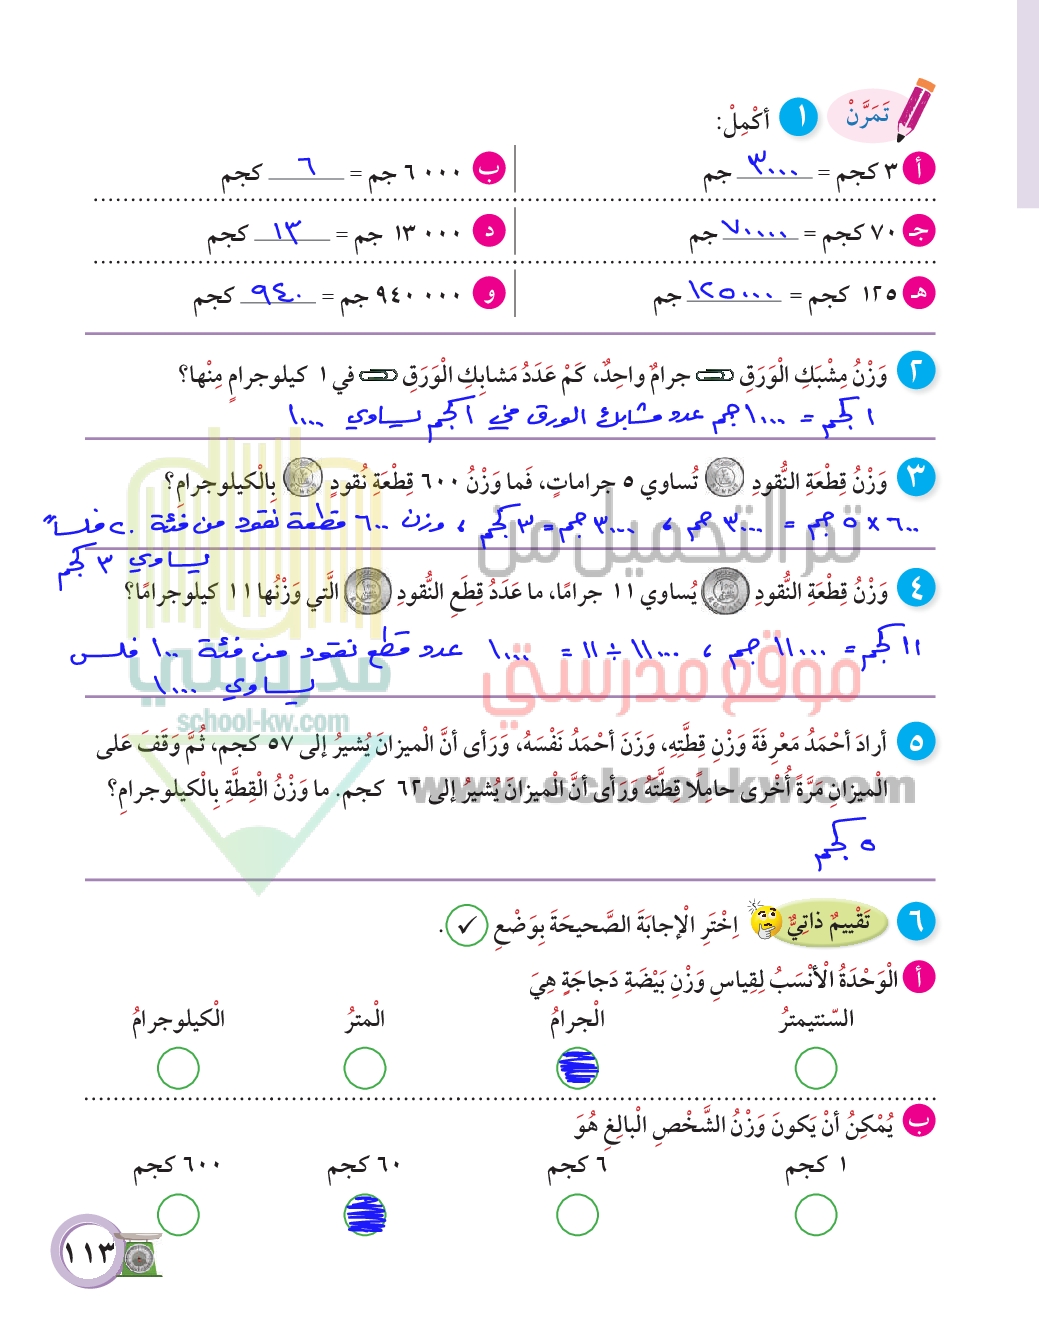 تَمَرَّنْ
١ أَكْمِلْ:
أ ٣ كجم = ٣٠٠٠ جم
ب ٦ ٠٠٠ جم = ٦ كجم
جـ ٧٠ كجم = ٧٠٠٠٠ جم
د ١٣ ٠٠٠ جم = ١٣ كجم
هـ ١٢٥ كجم = ١٢٥٠٠٠ جم
و ٩٤٠ ٠٠٠ جم = ٩٤٠ كجم
٢ وَزْنُ مِشْبَكِ الْوَرَقِ جرامٌ واحِدٌ، كَمْ عَدَدُ مَشابِكِ الْوَرَقِ في ١ كيلوجرامٍ مِنْها؟
١ كجم = ١٠٠٠ جم عدد مشابك الورق في ١ كجم يساوي ١٠٠٠
٣ وَزْنُ قِطْعَةِ النُّقودِ تُساوي ٥ جراماتٍ، فَما وَزْنُ ٦٠٠ قِطْعَةِ نُقودٍ بِالْكيلوجرامِ؟
٦٠٠ × ٥ جم = ٣٠٠٠ جم ، ٣٠٠٠ جم = ٣ كجم ، وزن ٦٠٠ قطعة نقود من فئة ٢٠ فلساً
يساوي ٣ كجم
٤ وَزْنُ قِطْعَةِ النُّقودِ يُساوي ١١ جرامًا، ما عَدَدُ قِطَعِ النُّقودِ الَّتي وَزْنُها ١١ كيلوجرامًا؟
١١ كجم = ١١٠٠٠ جم ، ١١٠٠٠ ÷ ١١ = ١٠٠٠ عدد قطع نقود من فئة ١٠٠ فلس
يساوي ١٠٠٠
تم التحميل من
موقع مدرستي
مدرستي
school-kw.com
www.school-kw.com
٥ أرادَ أحْمَدُ مَعْرِفَةَ وَزْنِ قِطَّتِهِ، وَزَنَ أحْمَدُ نَفْسَهُ، وَرَأى أنَّ الْميزانَ يُشيرُ إلى ٥٧ كجم، ثُمَّ وَقَفَ عَلى
الْميزانِ مَرَّةً أُخْرى حامِلًا قِطَّتَهُ وَرَأى أنَّ الْميزانَ يُشيرُ إلى ٦٢ كجم. ما وَزْنُ الْقِطَّةِ بِالْكيلوجرامِ؟
٥ كجم
٦ تَقْييمٌ ذاتِيٌّ اِخْتَرِ الْإجابَةَ الصَّحيحَةَ بِوَضْعِ ✓.
أ الْوَحْدَةُ الْأنْسَبُ لِقِياسِ وَزْنِ بَيْضَةِ دَجاجَةٍ هِيَ
السّنتيمترُ الْجرامُ الْمترُ الْكيلوجرامُ
ب يُمْكِنُ أنْ يَكونَ وَزْنُ الشَّخْصِ الْبالِغِ هُوَ
١ كجم ٦ كجم ٦٠ كجم ٦٠٠ كجم
١١٣